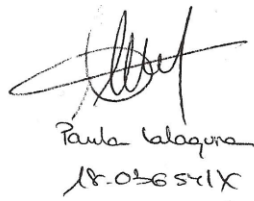 Paula Calaguna
18.036541X